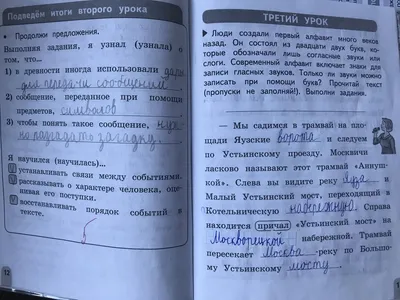 Подведём итоги второго урока
• Продолжи предложения.
Выполняя задания, я узнал (узнала) о
том, что...
1) в древности иногда использовали дары
для передачи сообщений
2) сообщение, переданное при помощи
предметов, символов
3) чтобы понять такое сообщение, нужно
загадку
Я научился (научилась)...
устанавливать связи между событиями.
рассказывать о характере человека, оце-
нивая его поступки.
восстанавливать порядок событий в
тексте.
5
12
ТРЕТИЙ УРОК
➤ Люди создали первый алфавит много веков
назад. Он состоял из двадцати двух букв, ко-
торые обозначали лишь согласные звуки или
слоги. Современный алфавит включает знаки для
записи гласных звуков. Только ли звуки можно
записать при помощи букв? Прочитай текст
(пропуски не заполняй!). Выполни задания.
— Мы садимся в трамвай на пло-
щади Яузские ворота и следуем
по Устьинскому проезду. Москвичи
ласково называют этот трамвай «Аннуш-
кой». Слева вы видите реку Яуза и
Малый Устьинский мост, переходящий в
Котельническую набережную. Справа
находится причал «Устьинский мост» на
Москворецкой набережной. Трамвай
пересекает Москва -реку по Большо-
му Устьинскому мосту.